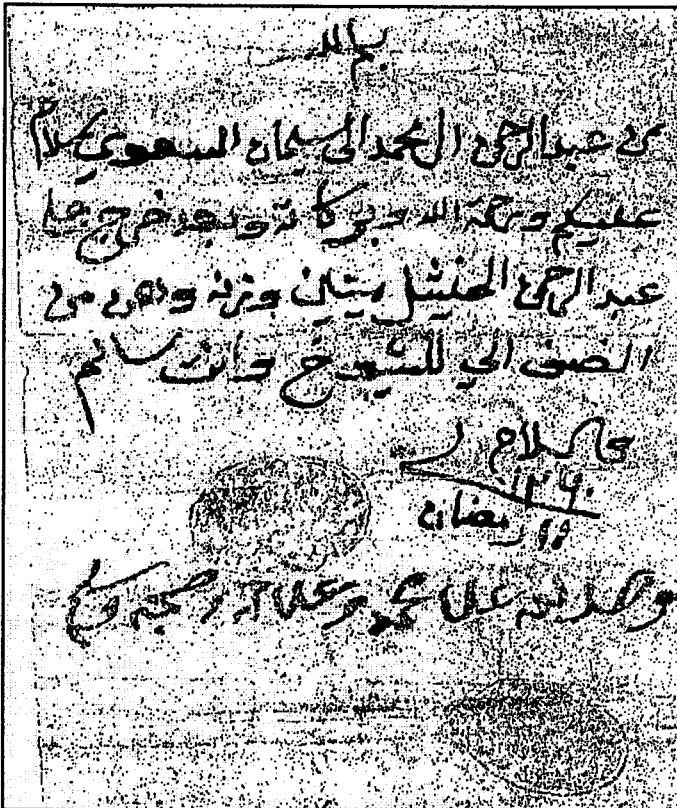 بسم الله
من عبد الرحمن المحمد الى سليمان السعوي سلام
عليكم ورحمة الله وبركاته وبعد خرج
عبد الرحمن الحنيشل ستين وزنه وهن من
النصف الي للشيوخ وأنت سالم
والسلام
رمضان
وصلى الله على محمد وعلى آله وصحبه وسلم